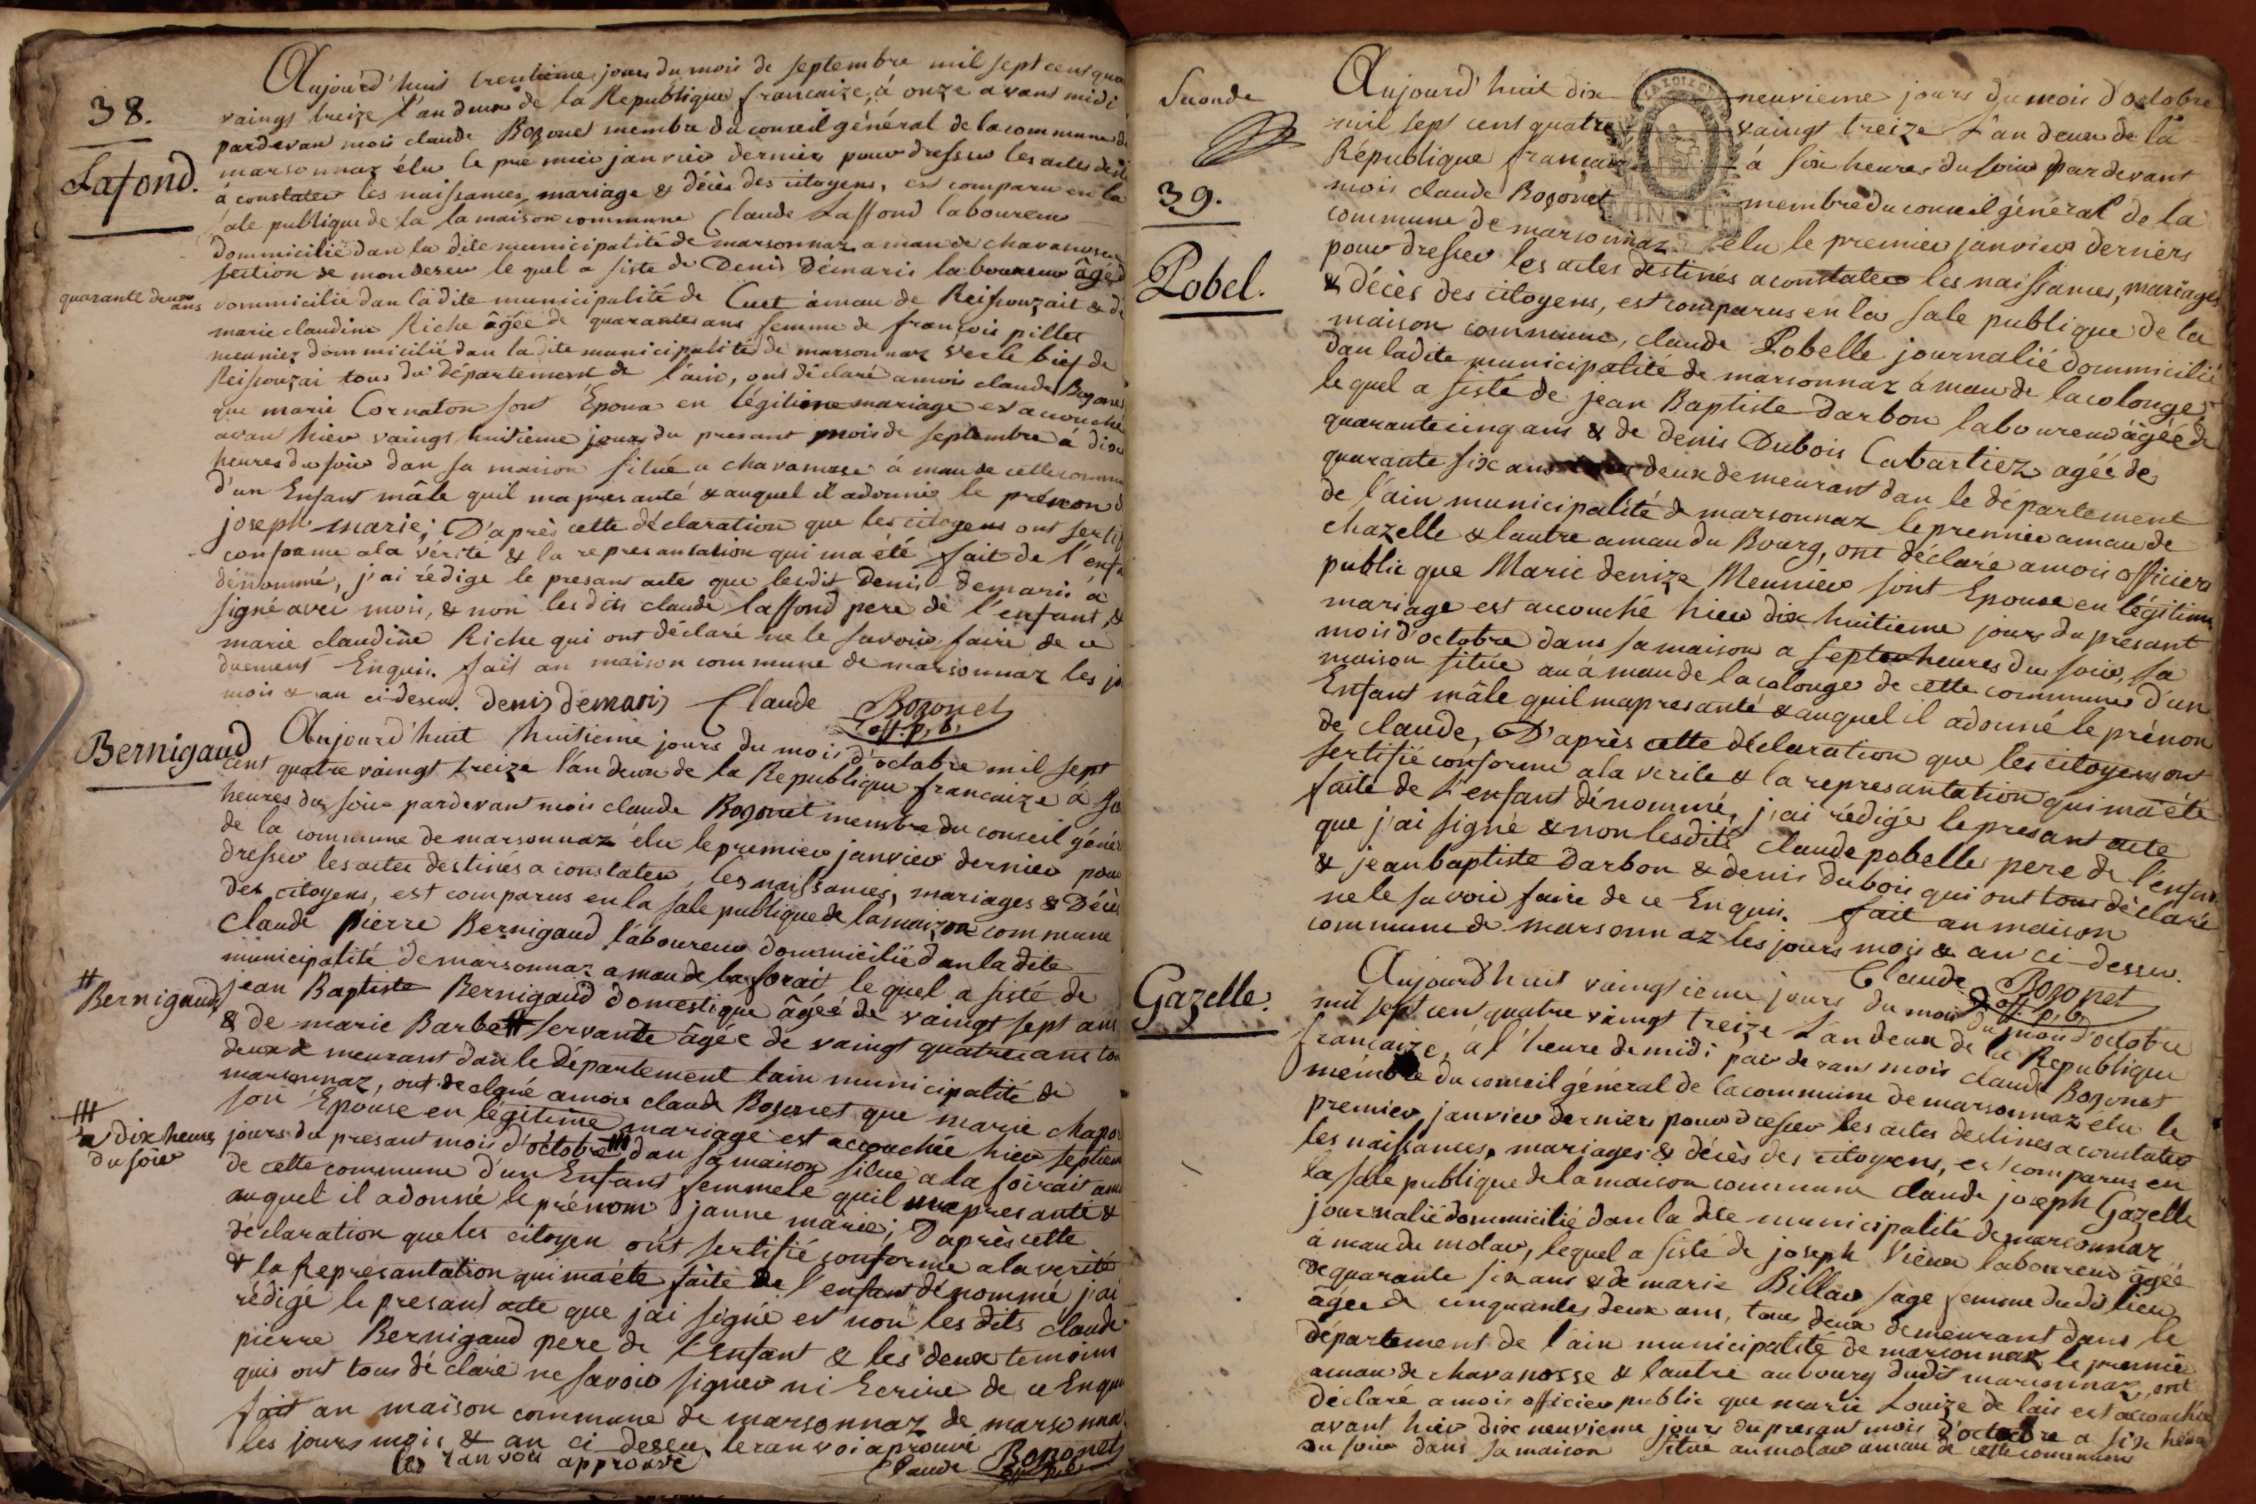 38.
Lafond.
Aujourd'huit trentieme jours du mois de septembre mil sept cent qua
vaingt treize l'an deux de la Republique francaize, à onze avant midi
pardevan mois claude Bozonet membre du conseil général de la commune de
marsonnaz élu le premier janvier dernier pour dresser les actes desti
à constater les naissances, mariage & décès des citoyens, est comparu en la
sale publique de la la maison commune Claude Laffond laboureur
dommicilié dan la dite municipalité de marsonnaz amau de chavanosse
section de le quel a sisté de Denis Démaris laboureur âgé d
quarante deux ans
dommicilié dan la dite municipalité de Cuet àmau de Reissouzait & d
marie claudine Riche âgée de quarantes ans femme de françois pillet
meunier dommicilié dan la dite municipalité de marsonnaz verle bief de
Reissouzai tous du département de l'ain, ont déclaré amois claude Bozonet
que marie Cornaton sont Epoua en légitime mariage est accouché
avan hier vaingt huitieme jours du presant mois de septembre à dix
heures du soir dan sa maison situé a chavanose à mau de cette commu
d'un Enfant mâle quil ma presanté & auquel il adonné le prénon d
joseph marie; D'après cette déclaration que les citoyens ont sertif
conforme ala vérité & la represantation qui ma été fait de l'enfa
dénommé, j'ai rédigé le presant acte que lesdit Denis Demaris à
signé avec mois, & non lesdits claude laffond pere de l'enfant, &
marie claudine Riche qui ont déclaré ne le savoir faire de ce
duement Enquis. fait an maison commune de marsonnaz les jo
mois & an ci desus. denis demaris Claude Bozonet
off. p. b.
Bernigaud
Aujourd'huit huitieme jours du mois d'octobre mil sept
cent quatre vaingt treize l'an deux de la Republique francaize à
heures du soir pardevant mois claude Bozonet membre du conseil génér
de la commune de marsonnaz élu le premier janvier dernier pour
dresser les actes destinés a constater, les naissances, mariages & Décès
des citoyens, est comparus en la sale publique de la maizon commune
Claude pierre Bernigaud laboureur dommicilié dan la dite
municipalité de marsonnaz amau de la forait lequel a sisté de
jean Baptiste Bernigaud domestique âgéé de vaingt sept ans
# Bernigaud
& de marie Barbe # servante âgée de vaingt quatre ans tou
deux de meurant dan le département lain municipalité de
marsonnaz, ont declaré amois claude Bozonet que marie chapo
son Epouse en légitime mariage est accouchée hier septiem
# a dix heures du soir
jours du presant mois d'octobre # dan sa maison situe a la foirait am
de cette commune d'un Enfant femmele quil ma presanté &
auquel il adonné le prénom janne marie; D'après cette
déclaration que les citoyen ont sertifié conforme ala verité
& la Represantation qui ma été faite de l'enfant dénommé j'ai
rédigé le presant acte que j'ai signé et non les dits claude
pierre Bernigaud pere de l'enfant & les deux temoins
quis ont tous déclaré ne savoir signer ni Ecrire de ce Enquis
fait an maison commune de marsonnaz de marsonna
les jours mois & an ci desus. le ranvoi aprouvé
les ranvois approuvé Claude Bozonet
off. p. b.
Seconde
39.
Pobel.
Aujourd'huit dix neuvieme jours du mois d'octobre
mil sept cent quatre vaingt treize l'an deux de la
République francaize à six heures du soir pardevant
mois claude Bozonet membre du conseil général de la
commune de marsonnaz elu le premier janvier derniers
pour dresser les actes destinés a constater les naissances, mariages
& décès des citoyens, est comparus en la sale publique de la
maison commune, claude Pobelle journalié dommicilié
dan ladite municipalité de marsonnaz à mau de lacolonge
le quel a sisté de jean Baptiste Darbon laboureur âgéé de
quarante cinq ans & de denis Dubois Cabartiez agéé de
quarante six ans deux demeurant dan le département
de l'ain municipalité de marsonnaz le premier amau de
chazelle & lautre amau du Bourg, ont déclaré amois officiers
public que Marie denize Meunier sont Epouse en légitime
mariage est accouché hier dix huitieme jours du présant
mois d'octobre dans sa maison a sept heures du soir, sa
maison située au à mau de lacolonge de cette commune d'un
Enfant mâle quil mapresanté & auquel il adonné le prénon
de claude, D'après cette déclaration que les citoyens ont
sertifié conforme ala verité & la represantation qui ma été
faite de l'enfant dénommé, j'ai rédigé le presant acte
que j'ai signé & non lesdits claude pobelle pere de l'enfant
& jean baptiste Darbon & denis dubois qui ont tous déclaré
ne le savoir faire de ce Enquis. fait an maison
commune de marsonnaz les jours mois & an ci-dessu.
Claude Bozonet
off. p. b.
Gazelle.
Aujourd'huit vaingtieme jours du mois du mois d'octobre
mil sept cent quatre vaingt treize l'an deux de la Republique
francaize, à l'heure de midi par devant mois claude Bozonet
membre du conseil général de la commune de marsonnaz élu le
premier janvier derniers pour dresser les actes destinés a constater
les naissances, mariages & décès des citoyens, est comparus en
la sale publique de la maison commune claude joseph Gazelle
journalié dommicilié dan la dite municipalité de marsonnaz
à mau du molar, lequel a sisté de joseph Vieux laboureur âgéé
de quarante six ans & de marie Billar sage femme du dit lieu
âgée de cinquantes deux ans, tous deux demeurant dans le
département de l'ain municipalité de marsonnaz le premié
amau de chavanosse & lautre au bourg dudit marsonnaz, ont
déclaré a mois officier public que marie Louize de lais est accouchée
avant hier dix neuvieme jours du presant mois d'octobre a six heures
du soir dans sa maison situe au molar amau de cette commune